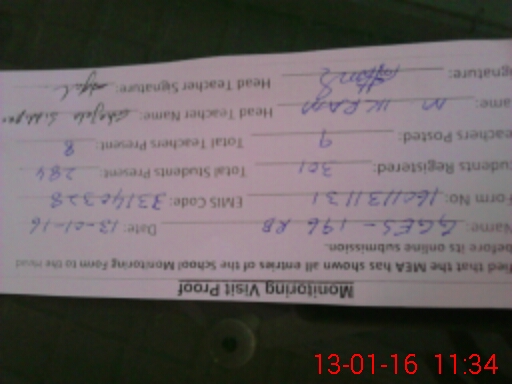 Monitoring Visit Proof
fied that the MEA has shown all entries of the School Monitoring Form to the Head
before its online submission.
Name: GGES-196 RB Date: 13-01-16
Form No: EMIS Code: 33140328
udents Registered: 301 Total Students Present: 284
eachers Posted: 9 Total Teachers Present: 8
ame: M IKRAM Head Teacher Name:
gnature: Head Teacher Signature:
13-01-16 11:34